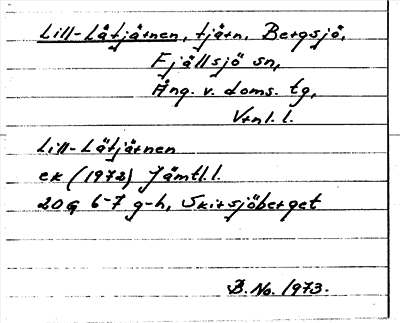 Lill-Låtjärnen, tjärn, Bergsjö,
Fjällsjö sn,
Ång. v. doms. tg,
Vrnl. l.
Lill-Låtjärnen
ek (1972) Jämtl. l.
20G 6-7 g-h, Skirsjöberget
B. No. 1973.